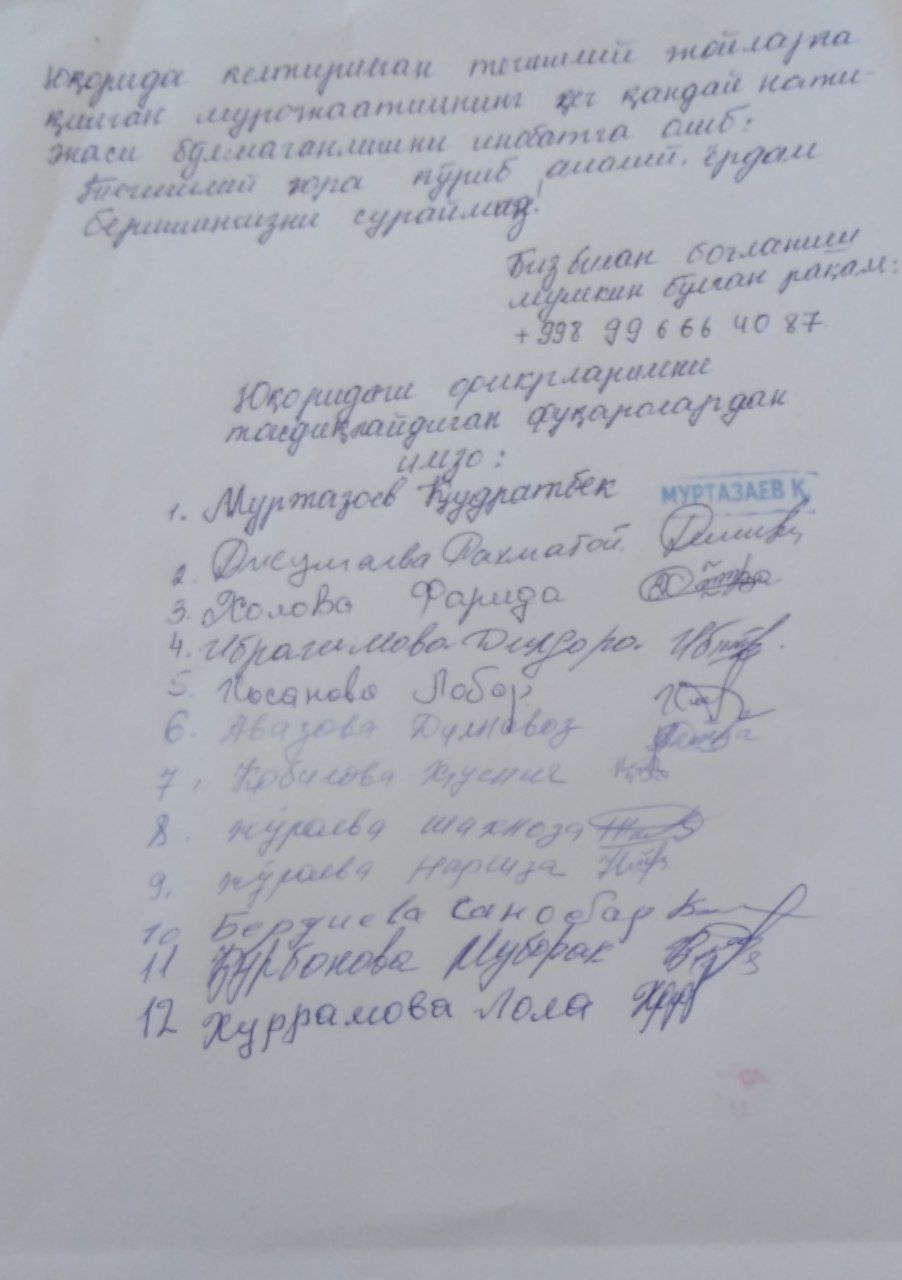 Юқорида келтирилган тегишлий жойларга
қилган мурожаатимнинг ҳеч қандай нати-
жаси бўлмаганлигини инобатга олиб:
Тегишлий чора кўриб амалий ёрдам
беришингизни сураймиз!
Биз билан боғланиш
мумкин бўлган рақам:
+998 99 666 40 87
Юқоридаги фикрларимни
тасдиқлайдиган фуқаролардан
имзо:
1. Муртазоев Қудратбек МУРТАЗАЕВ Қ
2. Джумаева Рахматой
3. Холова Фарида
4. Ибрагимова Дилдора
5. Хосанова Лобар
6. Авазова Дилнавоз
7. Кобилова
8. Жўраева Шахноза
9. Жўраева Наргиза
10 Бердиева Санобар
11 Қурбонова Муборак
12 Хуррамова Лола